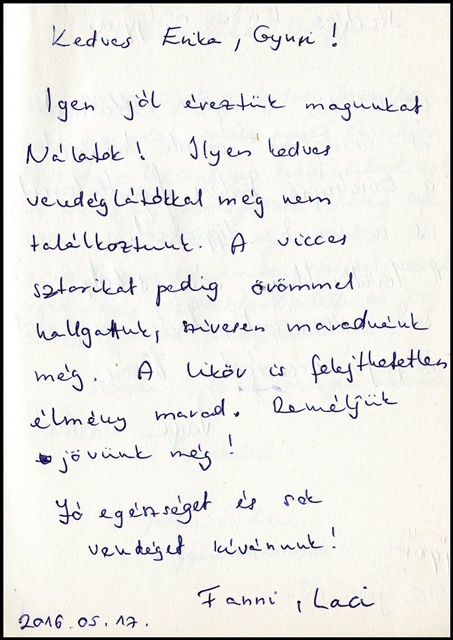 Kedves Erika, Gyuri!
Igen jól éreztük magunkat
Nálatok! Ilyen kedves
vendéglátókkal még nem
találkoztunk. A vicces
sztorikat pedig örömmel
hallgattuk, szívesen maradnánk
még. A likőr is felejthetetlen
élmény marad. Reméljük
jövünk még!
Jó egészséget és sok
vendéget kívánunk!
Fanni, Laci
2016.05.17.